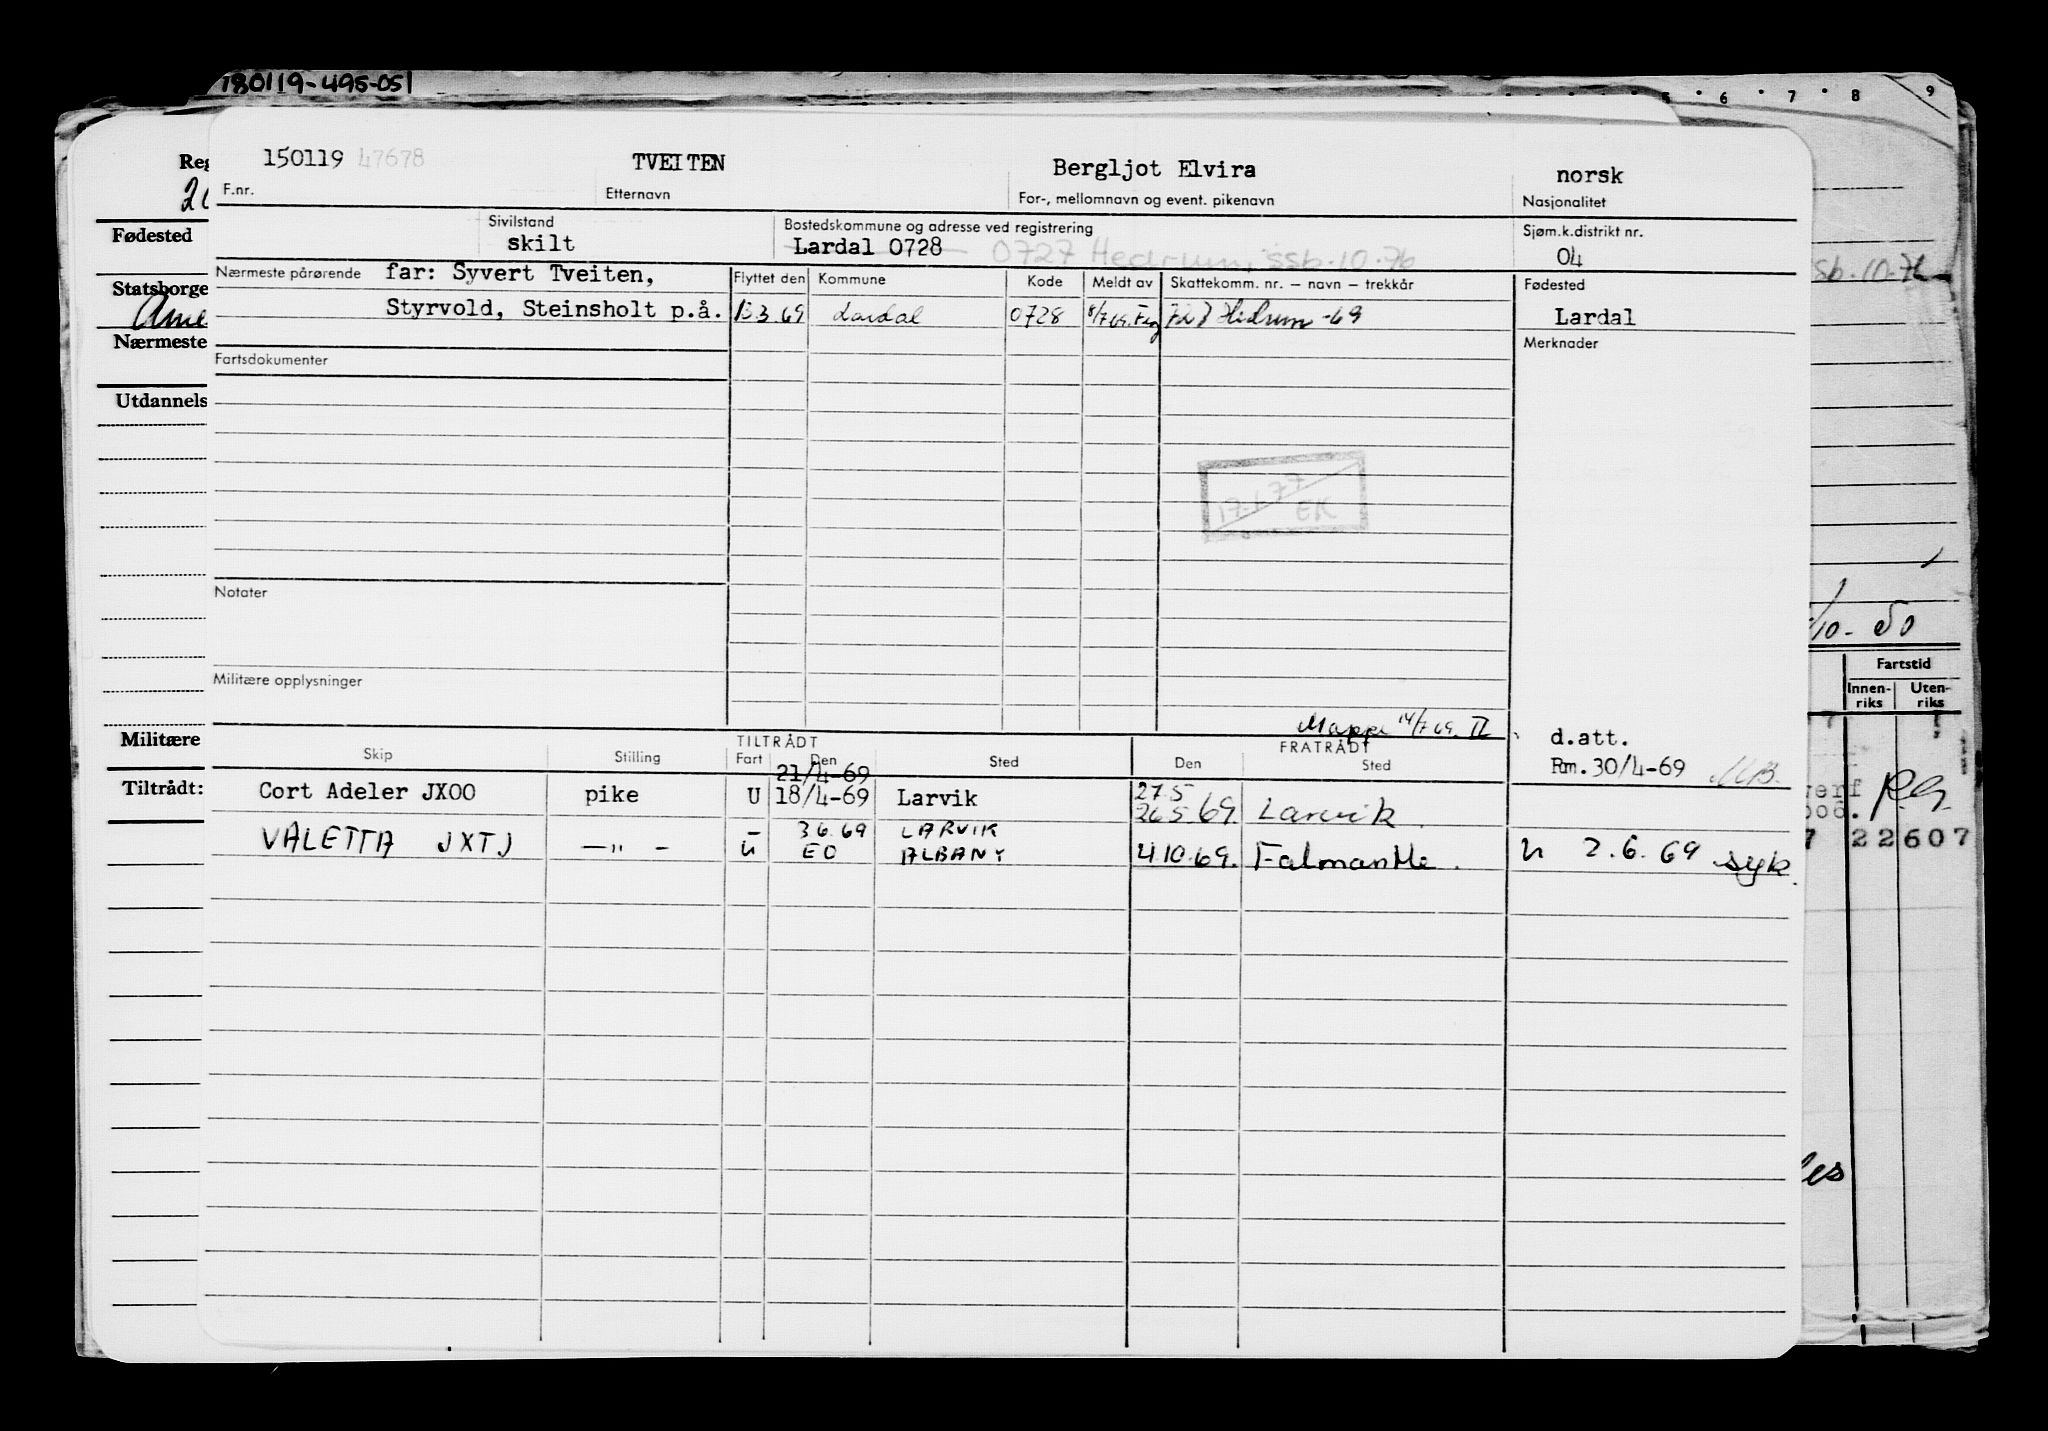 180119-495-051
5 6 7 8 9
150119 47678 TVEITEN Bergljot Elvira norsk
F.nr. Etternavn For-, mellomnavn og event. pikenavn Nasjonalitet
Sivilstand Bostedskommune og adresse ved registrering Sjøm.k.distrikt nr.
skilt Lardal 0728 0727 Hedrum, ssb.10.76 04
Nærmeste pårørende far: Syvert Tveiten, Flyttet den Kommune Kode Meldt av Skattekomm. nr. – navn – trekkår Fødested
Styrvold, Steinsholt p.å. 13.3.69 Lardal 0728 8/7 69. Hedrum -69 Lardal
Fartsdokumenter Merknader
17.1.77
EK
Notater
Militære opplysninger
Mappe 14/7 69. II
TILTRÅDT FRATRÅDT d.att.
Skip Stilling Fart Den Sted Den Sted Rm. 30/4-69
21/4-69
Cort Adeler JXOO pike U 18/4-69 Larvik 27.5 26.5.69. Larvik.
VALETTA JXTJ —"— – 3.6.69 LARVIK
U EO ALBANY 4.10.69. Falmanthe. U 2.6.69 syk.
Reg
Fødested
Statsborge
Ame
Nærmeste
Utdannels
Militære
Tiltrådt:
sb.10.76
/10-50
Fartstid
Innen-
riks
Uten-
riks
verf
006. RG.
7 22607
les